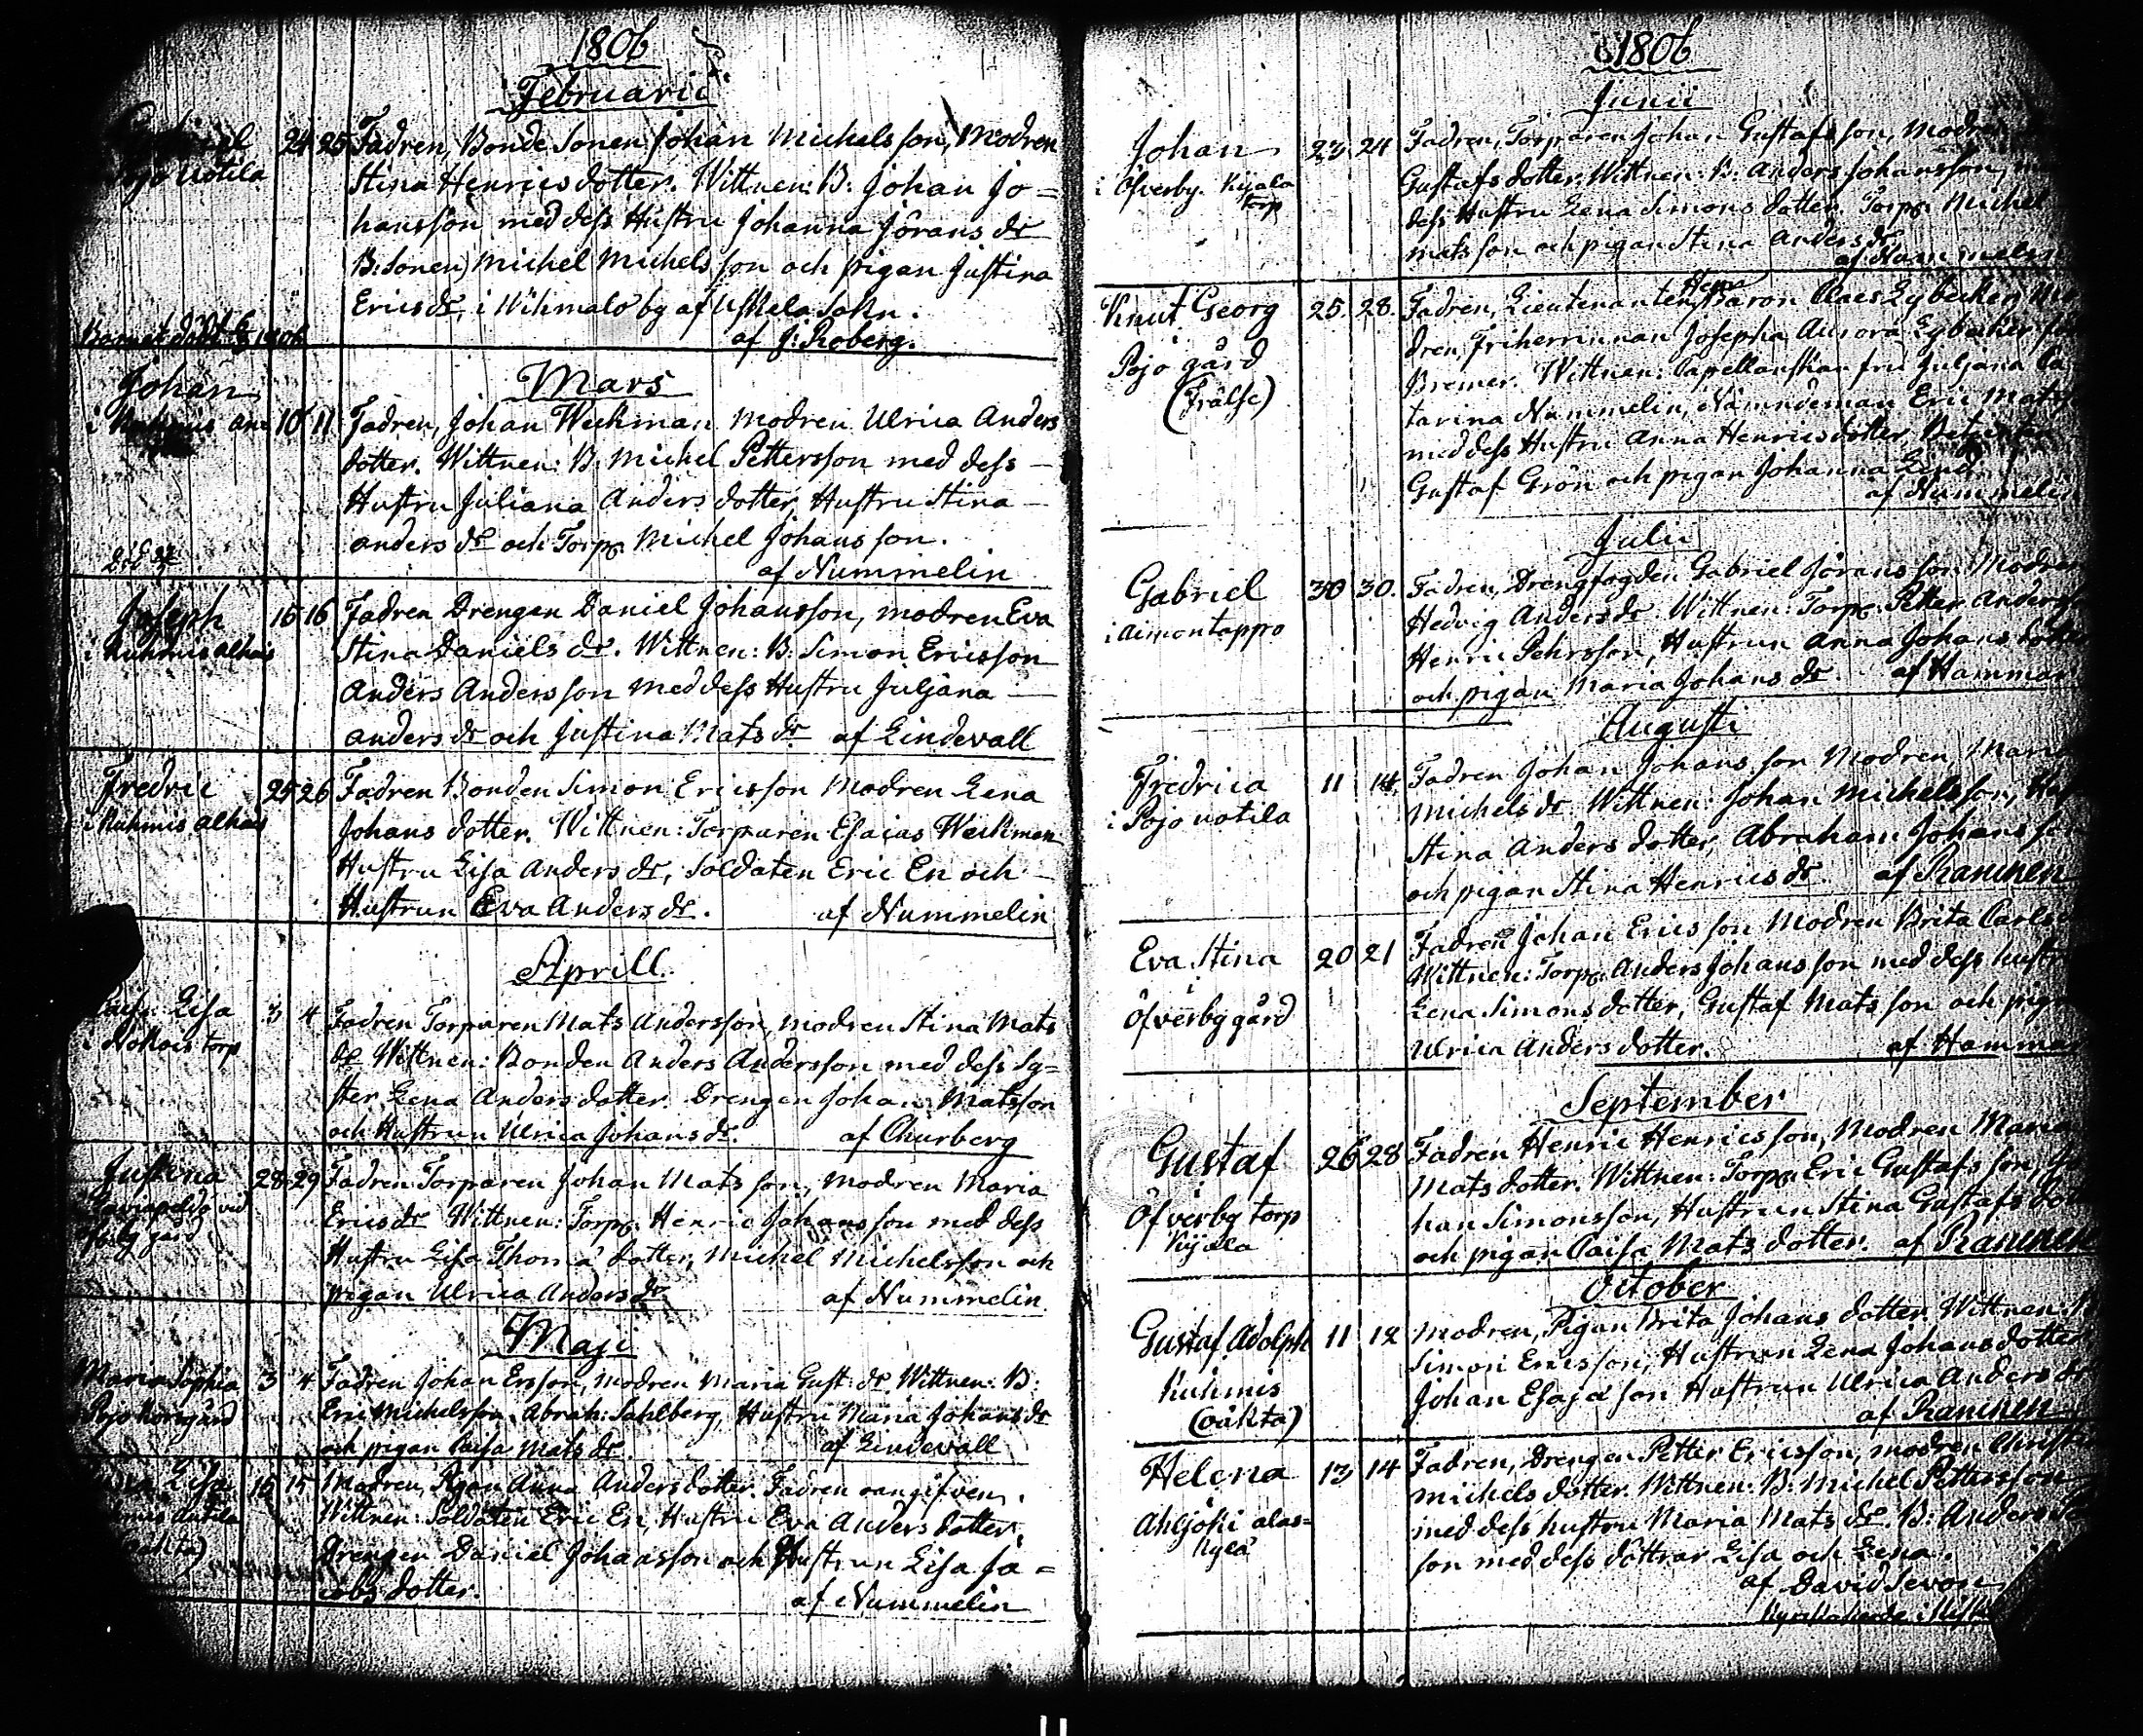 1806
Februarii
Uotila
24 25 Fadren, Bonde Sonen Johan Michelsson, Modren
Stina Henricsdotter. Wittnen: B: Johan Jo=
hansson med dess Hustru Johanna Jörans dr
B: Sonen Michel Michelsson och pigan Justina
Ericsdr, i Wihmalo by af Uskela Sokn.
af J: Roberg.
Barnet dödt 1806
Mars
Johan
i 10 11 Fadren, Johan Weckman Modren Ulrica Anders
dotter. Wittnen: B. Michel Pettersson med dess
Hustru Juliana Anders dotter, Hustru Stina
anders dr och Torp. Michel Johansson.
af Nummelin
Joseph
i Kuhmis alhais
15 16 Fadren Drengen Daniel Johansson, modren Eva
Stina Daniels dr. Wittnen: B: Simon Ericsson
Anders Andersson med dess Hustru Juljana
anders dr och Justina Mats dr. af Lindevall
Fredric
i Kuhmis alhais
25 26 Fadren Bonden Simon Ericsson Modren Lena
Johans dotter. Wittnen: Torparen Esaias Weckman
Hustru Lisa Anders dr, Soldaten Eric En och
Hustrun Eva Anders dr. af Nummelin
Aprill
Caisa Lisa
i torp
3 4 Fadren Torparen Mats Andersson, modren Stina Mats
dr Wittnen: Bonden Anders Andersson med dess Sy=
ster Lena Anders dotter. Drengen Johan Matsson
och Hustrun Ulrica Johans dr. af Churberg
Justina
vid
gård
28 29 Fadren Torparen Johan Mats son, modren Maria
Erics dr Wittnen: Torp. Henric Johansson med dess
Hustru Lisa Thomæ dotter, Michel Michelsson och
pigan Ulrica Anders dr. af Nummelin
Maji
Maria Sophia
Pojo Korsgård
3 4 Fadren Johan Ersson, modren Maria Gust: dr. Wittnen: B:
Eric Michelsson, Abrah: Sahlberg, Hustru Maria Johans dr
och pigan Caisa Mats dr. af Lindevall
Lisa
Antila
15 Modren, Pigan Anna Anders dotter. Fadren oangifven.
Wittnen: Soldaten Eric En, Hustru Eva Anders dotter,
Drengen Daniel Johansson och Hustrun Lisa Ja=
cobs dotter. af Nummelin
1806
Junii
Johan
i Öfverby Kyala
torp
23 24 Fadren, Torparen Johan Gustafsson, Modren
Gustafs dotter. Wittnen: B: Anders Johansson,
dess Hustru Lena Simons dotter. Torp. Michel
matsson och pigan Stina Anders dr.
af Nummelin
Knut Georg
Pojo gård
(Frälse)
25 28 Fadren, Lieutenanten Herr Baron Claes Lybecker, Mo
dren, Friherrinnan Josepha Aurora Lybecker, född
Bremer. Wittnen: Capellanskan fru Juljana Ca
tarina Nummelin, Nämndeman Eric Mats
med dess Hustru Anna Henrics dotter,
Gustaf Grön och pigan Johanna
af Nummelin
Julii
Gabriel
i Aimontappo
30 30. Fadren, Drengfogden Gabriel Jöransson Modren
Hedvig Anders dr. Wittnen: Torp. Petter Anders
Henric Pehrsson, Hustrun Anna Johans dotter
och pigan Maria Johans dr. af Hammar
Augusti
Fredrica
i Pojo uotila
11 14 Fadren Johan Johansson Modren, Mari
Michels dr. Wittnen: Johan Michelsson,
Stina Anders dotter, Abraham Johansson
och pigan Stina Henrics dr. af Raminen
Eva Stina
i
Öfverby gård
20 21 Fadren Johan Ericsson Modren Brita Carls
Wittnen: Torp. Anders Johansson med dess hustru
Lena Simons dotter, Gustaf Matsson och pig
Ulrica Anders dotter. af Hammar
September
Gustaf
Öfverby torp
Kyala
26 28 Fadren Henric Henricsson, Modren Maria
Mats dotter. Wittnen: Torp. Eric Gustafsson, Jo
han Simonsson, Hustrun Stina Gustafs dot
och pigan Caisa Mats dotter. af Raminen
October
Gustaf Adolph
Kuhmis
(oäkta)
11 12 Modren, Pigan Brita Johans dotter. Wittnen: B
Simon Ericsson, Hustrun Lena Johansdotter
Johan Esajæ son Hustrun Ulrica Anders dr
af Raminen
Helena
Ahljoki alas=
kylä
13 14 Fadren, Drengen Petter Ericsson, modren Christ
Michels dotter. Wittnen: B: Michel Pettersson
med dess hustru Maria Mats dr. B: Anders
son med dess döttrar Lisa och Lena.
af David Sevon